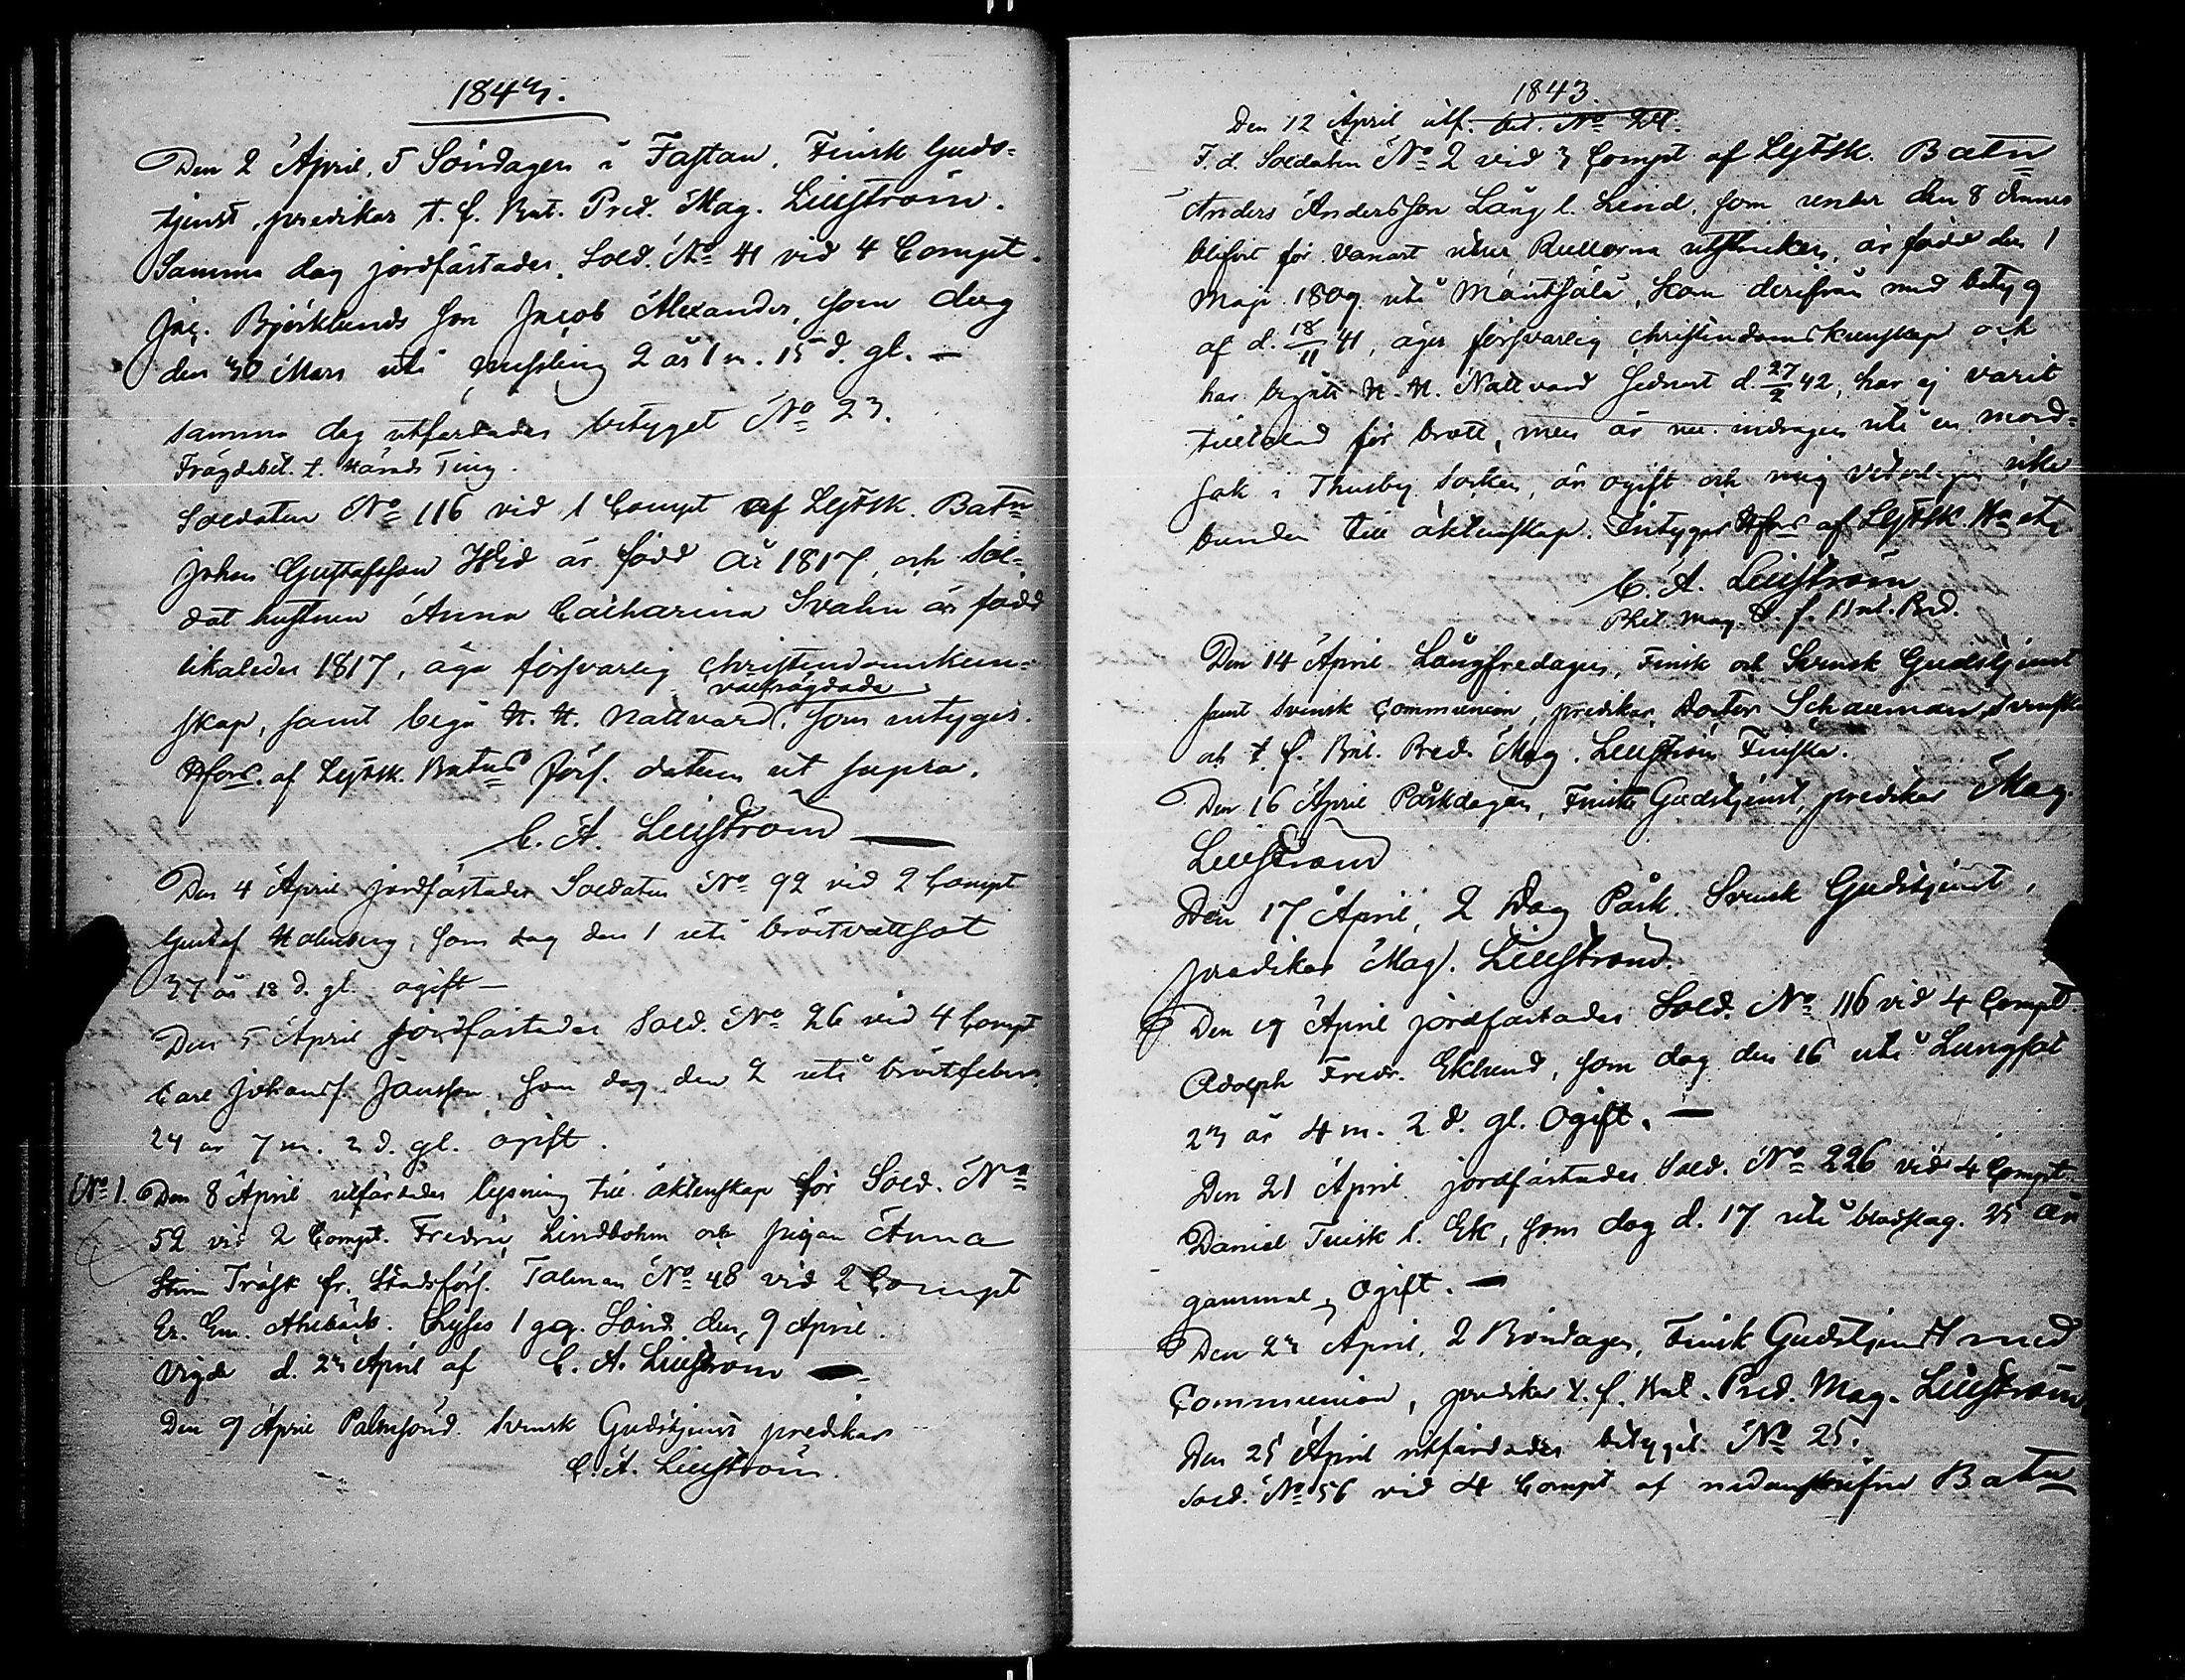 1843.
Den 2 April, 5 Söndagen i Fastan, Finsk Guds-
tjenst, predikar t. f. Bat. Pred. Mag. Liliström.
Samma dag jordfästades, Sold. No 41 vid 4 Compt.
Jac. Björklunds son Jacob Alexander, som dog
den 30 Mars uti messling 2 år 1 m. 15 d. gl. —
Samma dag utfärdades betyget No 23.
Frägdebet. t. Härads Ting.
Soldaten No 116 vid 1 Compt af Lejfsk. Batn
Johan Gustafsson Hid är född år 1817, och Sol-
dat hustrun Anna Catharina Svahn är född
likaledes 1817, äga försvarlig christendomskun-
välfrägdade
skap, samt begå H. H. Nattvard, som intygar.
Hfors. af Lejfsk. Batns förs. datum ut supra.
C. A. Liliström —
Den 4 April jordfästades Soldaten No 92 vid 2 Compt
Gustaf Holmberg, som dog den 1 uti bröstvattsot
37 år 18 d. gl. ogift —
Den 5 April jordfästades Sold. No 26 vid 4 Compt
Carl Johanss. Jansson, som dog den 2 uti bröstfeber
24 år 7 m. 2 d. gl. ogift.
No 1. Den 8 April utfärdades lysning till äktenskap för Sold. No
52 vid 2 Compt. Fredric Lindbohm och pigan Anna
Stina Träsk fr. Stadsförs. Talman No 48 vid 2 Compt
Er. Em. Ahlbäck. Lyses 1 gg. Sönd. den 9 April.
Vigde d. 23 April af C. A. Liliström —
Den 9 April Palmsönd. Svensk Gudstjenst predikar
C. A. Liliström.
1843.
Den 12 April utf. bet. No 24.
F. d. Soldaten No 2 vid 3 Compt af Lejfsk. Batn
Anders Andersson Lång l. Lind, som under den 8 dennes
blifvit för vanart utur Rullorna utstruken, är född den 1
Maji 1809 uti Mäntsälä, kom derifrån med betyg
af d. 18/11 41, äger försvarlig christendomskunskap och
har begått H. H. Nattvard sednast d. 27/2 42, har ej varit
tilltalad för brott, men är nu indragen uti en mord-
sak i Thusby Socken, är ogift och mig veterligen icke
bunden till äktenskap. Intygar Hfors af Lejfsk. etc.
C. A. Liliström
Phil. Mag. t. f. Bat. Pred.
Den 14 April Långfredagen, Finsk och Svensk Gudstjenst
samt Svensk Communion, predikar Doctor Schauman, Svenska
och t. f. Bat. Pred. Mag. Liliström Finska.
Den 16 April Påskdagen, Finsk Gudstjenst, predikar Mag.
Liliström
Den 17 April, 2 Dag Påsk. Svensk Gudstjenst,
predikar Mag. Liliström.
Den 19 April jordfästades Sold. No 116 vid 4 Compt.
Adolph Fredr. Eklund, som dog den 16 uti Lungsot
23 år 4 m. 2 d. gl. Ogift. —
Den 21 April jordfästades Sold. No 226 vid 4 Compt
Daniel Tuisk l. Ek, som dog d. 17 uti blodslag. 25 år
gammal, Ogift. —
Den 23 April, 2 Böndagen, Finsk Gudstjenst med
Communion, predikar t. f. Bat. Pred. Mag. Liliström.
Den 25 April utfärdades betyget No 25.
Sold. No 56 vid 4 Compt af nedanskrifne Batn